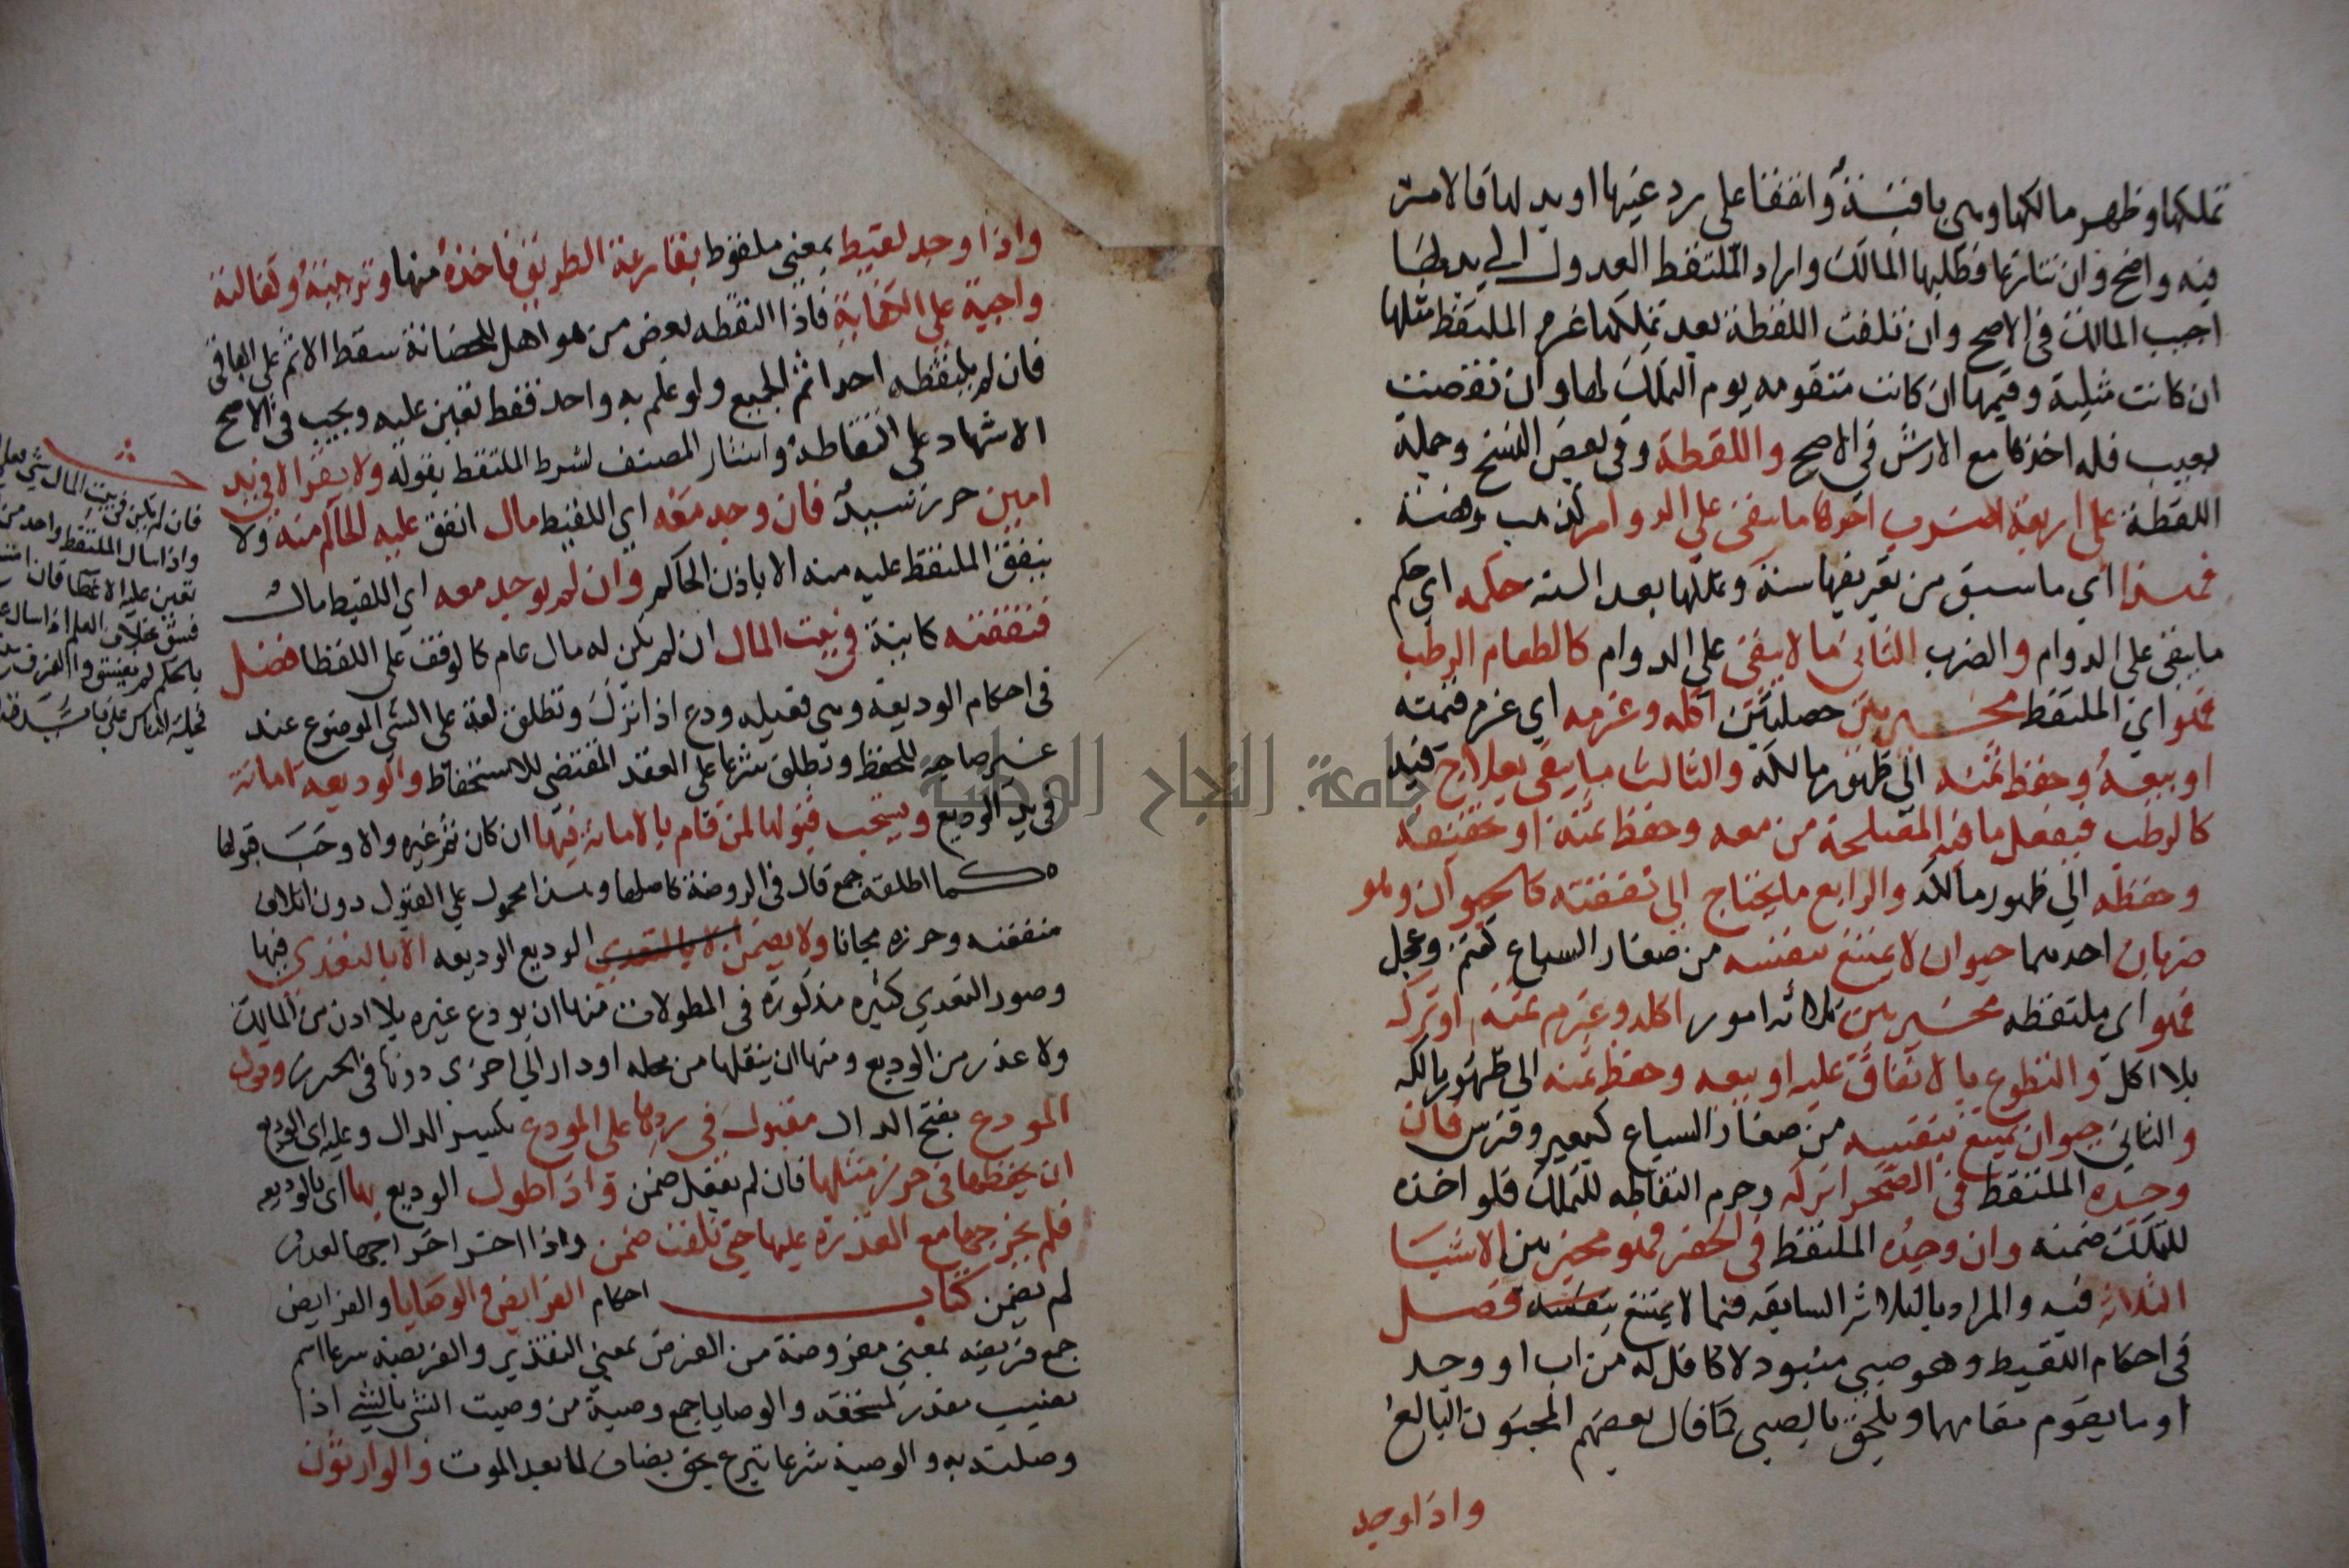 تملكها وظهر مالكها وهي باقية واتفقا على رد عينها او بدلها فالامر
فيه واضح وان تنازعا فطلبها المالك واراد الملتقط العدول الي بدلها
اجيب المالك في الاصح وان تلفت اللقطة بعد تملكها غرم الملتقط مثلها
ان كانت مثلية وقيمتها ان كانت متقومه يوم التملك لها وان نقصت
بعيب فله اخذها مع الارش في الاصح واللقطة وفي بعض النسخ وجملة
اللقطة على اربعة اضرب احدها ما يبقى على الدوام كذهب وفضة
فهذا اي ما سبق من تعريفها سنة وتملكها بعد السنه حكمه اي حكم
ما يبقى على الدوام والضرب الثاني ما لا يبقى على الدوام كالطعام الرطب
فهو اي الملتقط مخير بين خصلتين اكله وغرمه اي غرم قيمته
او بيعه وحفظ ثمنه الي ظهور مالكه والثالث ما يبقى بعلاج فيه
كالرطب فيفعل ما فيه المصلحة من بيعه وحفظ ثمنه او تجفيفه
وحفظه الي ظهور مالكه والرابع ما يحتاج الي نفقته كالحيوان وهو
ضربان احدهما حيوان لا يمتنع بنفسه من صغار السباع كغنم وعجل
فهو اي ملتقطه مخير بين ثلاثه امور اكله وغرم ثمنه او تركه
بلا اكل والتطوع بالانفاق عليه او بيعه وحفظ ثمنه الى ظهور مالكه
والثاني حيوان يمتنع بنفسه من صغار السباع كبعير وفرس فان
وجده الملتقط في الصحرا تركه وحرم التقاطه للتملك فلو اخذه
للتملك ضمنه وان وجده الملتقط في الحضر فهو مخير بين الاشيا
الثلاثه فيه والمراد بالثلاثه السابقه فيما لا يمتنع بنفسه فصل
في احكام اللقيط وهو صبي منبوذ لا كافل له من اب او وجد
او ما يقوم مقامهما ويلحق بالصبي كما قال بعضهم المجنون البالغ
واذا وجد
واذا وجد لقيط بمعني ملقوط بقارعة الطريق فاخذه منها وتربيته وكفالته
واجبة علي الكفاية فاذا التقطه بعض من هو اهل للحضانة سقط الاثم علي الباقي
فان لم يلتقطه احد اثم الجميع ولو علم به واحد فقط تعين عليه ويجب في الاصح
الاشهاد على التقاطه واشار المصنف لشرط الملتقط بقوله ولا يقر الا في يد
امين حر رشيد فان وجد معه اي اللقيط مال انفق عليه الحاكم منه ولا
ينفق الملتقط عليه منه الا باذن الحاكم وان لم يوجد معه اي اللقيط مال
فنفقته كاينة في بيت المال ان لم يكن له مال عام كالوقف على اللقطا فصل
في احكام الوديعة وهي فعيله ودع اذا ترك وتطلق لغة على الشي الموضوع عند
غير صاحبه للحفظ وتطلق شرعا على العقد المقتضي للاستحفاظ والوديعه امانة
في يد الوديع ويستحب قبولها لمن قام بالامانة فيها ان كان ثم غيره والا وجب قبولها
كما اطلقه جمع قال في الروضة كاصلها وهذا محمول علي القبول دون اتلاف
منفعته وحرزه مجانا ولا يضمن الا بالتعدي الوديع الوديعه الا بالتعدي فيها
وصور التعدي كثيره مذكورة في المطولات منها ان يودع غيره بلا اذن من المالك
ولا عذر من الوديع ومنها ان ينقلها من محله او دار الي اخري دونها في الحرز وقول
المودع بفتح الدال مقبول في ردها على المودع بكسر الدال وعليه اي الوديع
ان يحفظها في حرز مثلها فان لم يفعل ضمن واذا طولب الوديع بها اي بالوديعه
فلم يخرجها مع القدرة عليها حتى تلفت ضمن واذا اخر اخراجها لعذر
لم يضمن كتاب احكام الفرايض والوصايا والفرايض
جمع فريضه بمعني مفروضة من الفرض بمعني التقدير والفريضه شرعا اسم
نصيب مقدر لمستحقه والوصايا جمع وصية من وصيت الشي بالشي اذا
وصلته به والوصية شرعا تبرع بحق مضاف لما بعد الموت والوارثون
فان لم يكن في بيت المال شي
واذا سال الملتقط واحد من
تعين عليه الاعطا فان امتنع
جامعة النجاح الوطنية